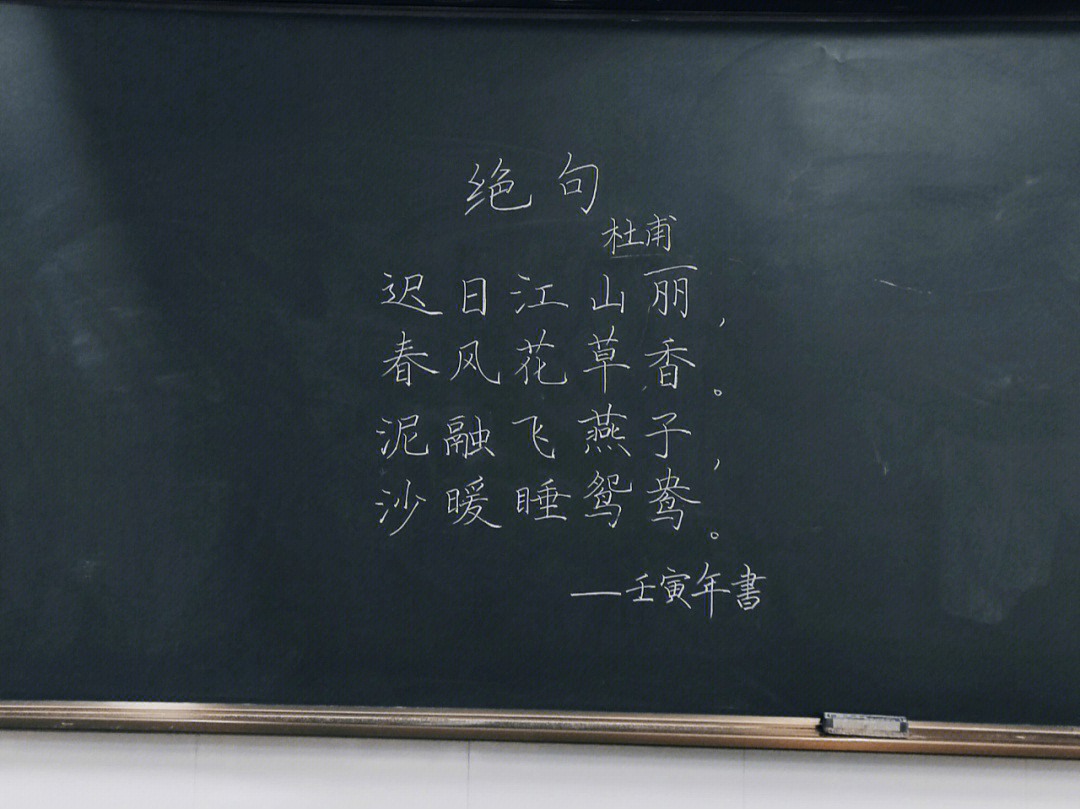 绝句
杜甫
迟日江山丽，
春风花草香。
泥融飞燕子，
沙暖睡鸳鸯。
—壬寅年書